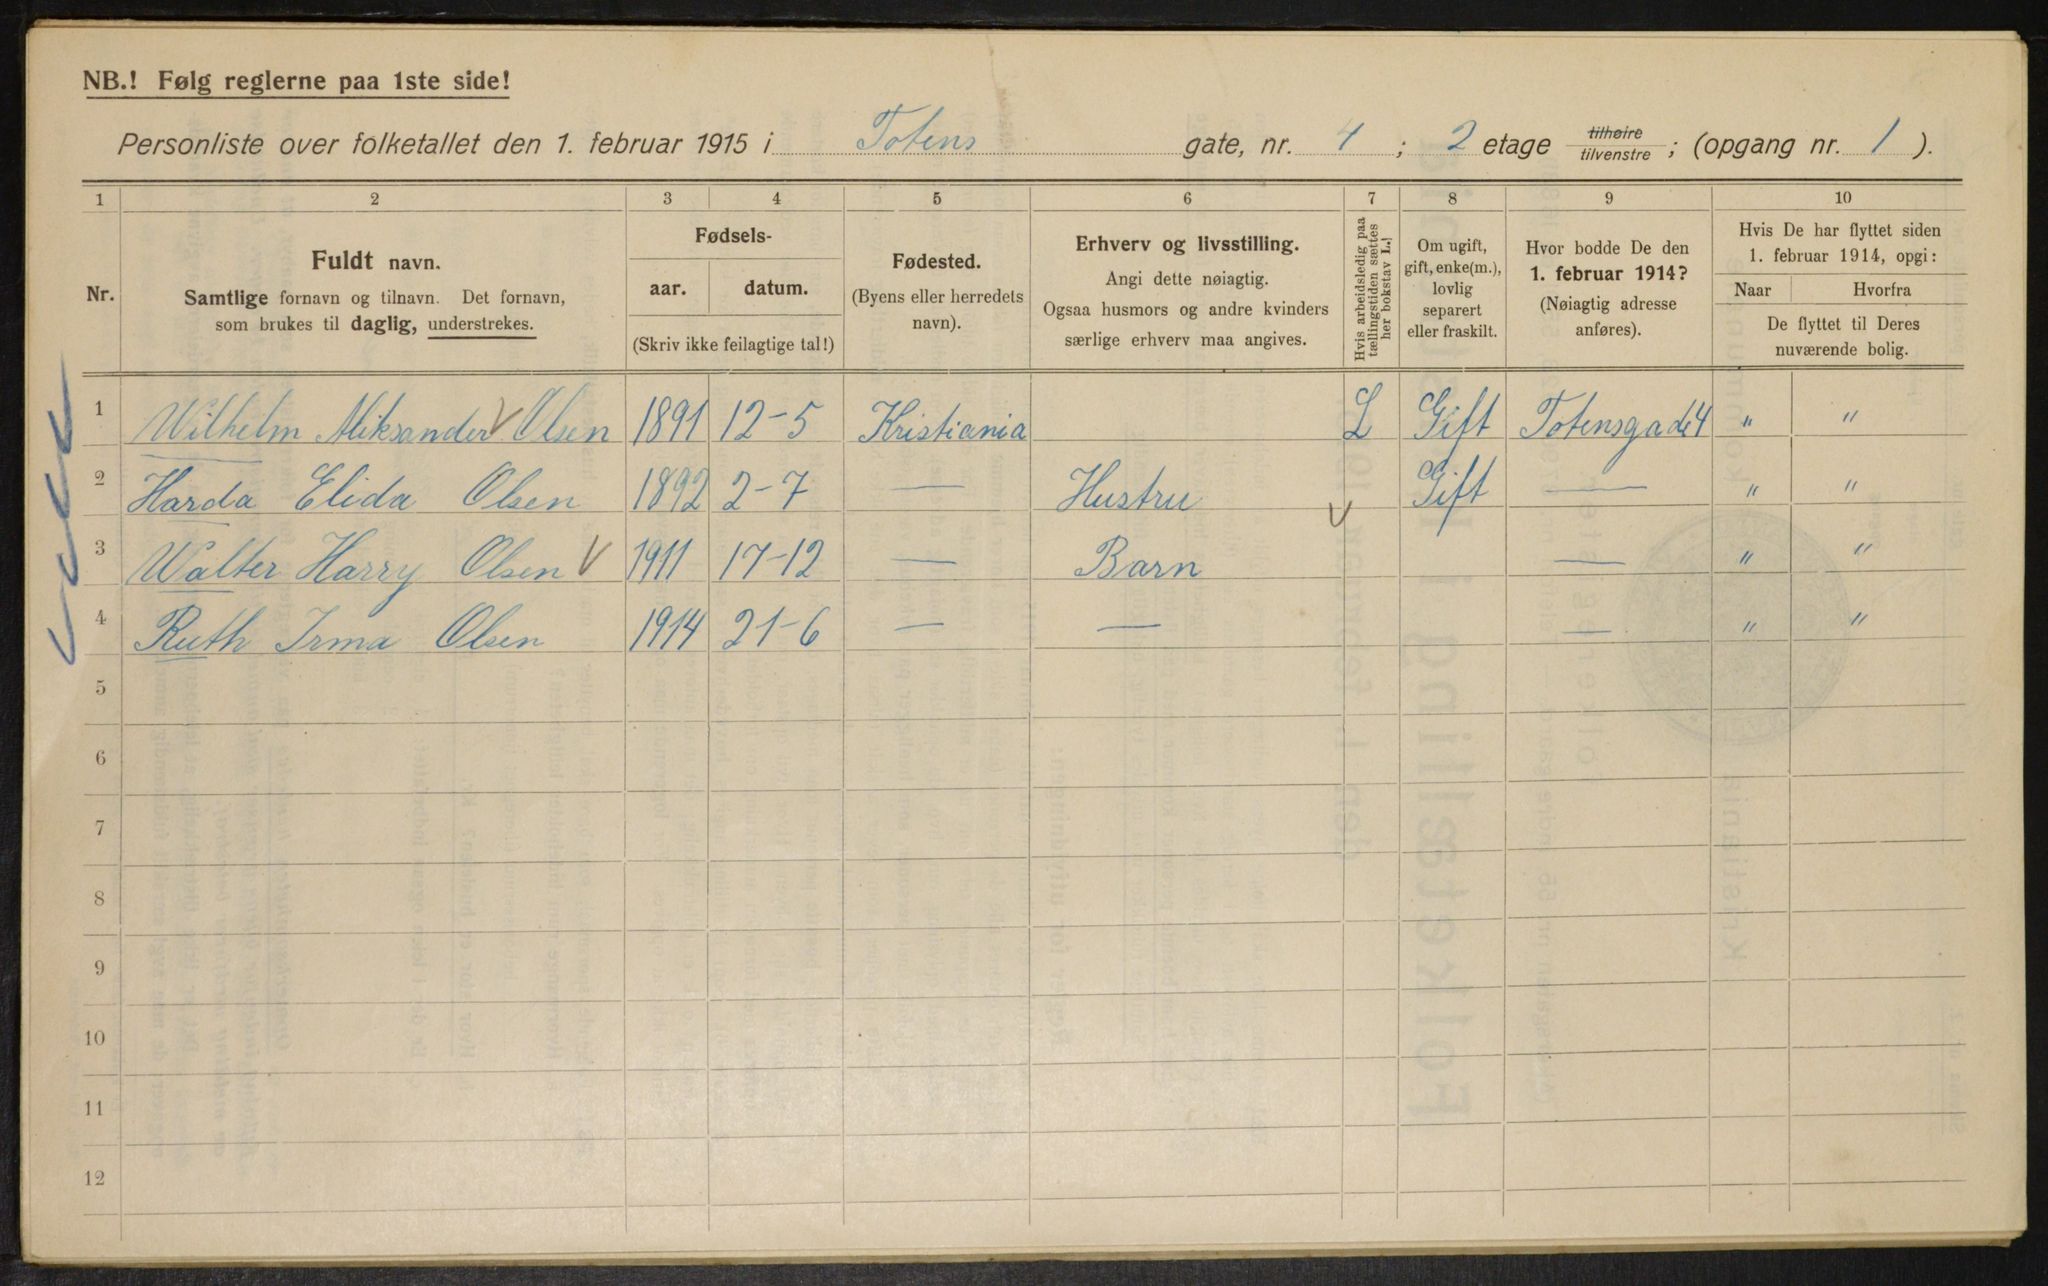 NB.! Følg reglerne paa 1ste side!
Personliste over folketallet den 1. februar 1915 i Totens gate, nr. 4 ; 2 etage tilhøire tilvenstre ; (opgang nr. 1 ).
1 2 3 4 5 6 7 8 9 10
Nr.
Fuldt navn.
Samtlige fornavn og tilnavn. Det fornavn,
som brukes til daglig, understrekes.
Fødsels-
aar. datum.
(Skriv ikke feilagtige tal!)
Fødested.
(Byens eller herredets
navn).
Erhverv og livsstilling.
Angi dette nøiagtig.
Ogsaa husmors og andre kvinders
særlige erhverv maa angives.
Hvis arbeidsledig paa
tællingstiden sættes
her bokstav L.!
Om ugift,
gift, enke(m.),
lovlig
separert
eller fraskilt.
Hvor bodde De den
1. februar 1914?
(Nøiagtig adresse
anføres).
Hvis De har flyttet siden
1. februar 1914, opgi:
Naar Hvorfra
De flyttet til Deres
nuværende bolig.
1 Wilhelm Aleksander Olsen 1891 12-5 Kristiania L Gift Totensgade 4 " "
2 Harda Elida Olsen 1892 2-7 — Hustru Gift — " "
3 Walter Harry Olsen 1911 17-12 — Barn — " "
4 Ruth Irma Olsen 1914 21-6 — — — " "
5
6
7
8
9
10
11
12